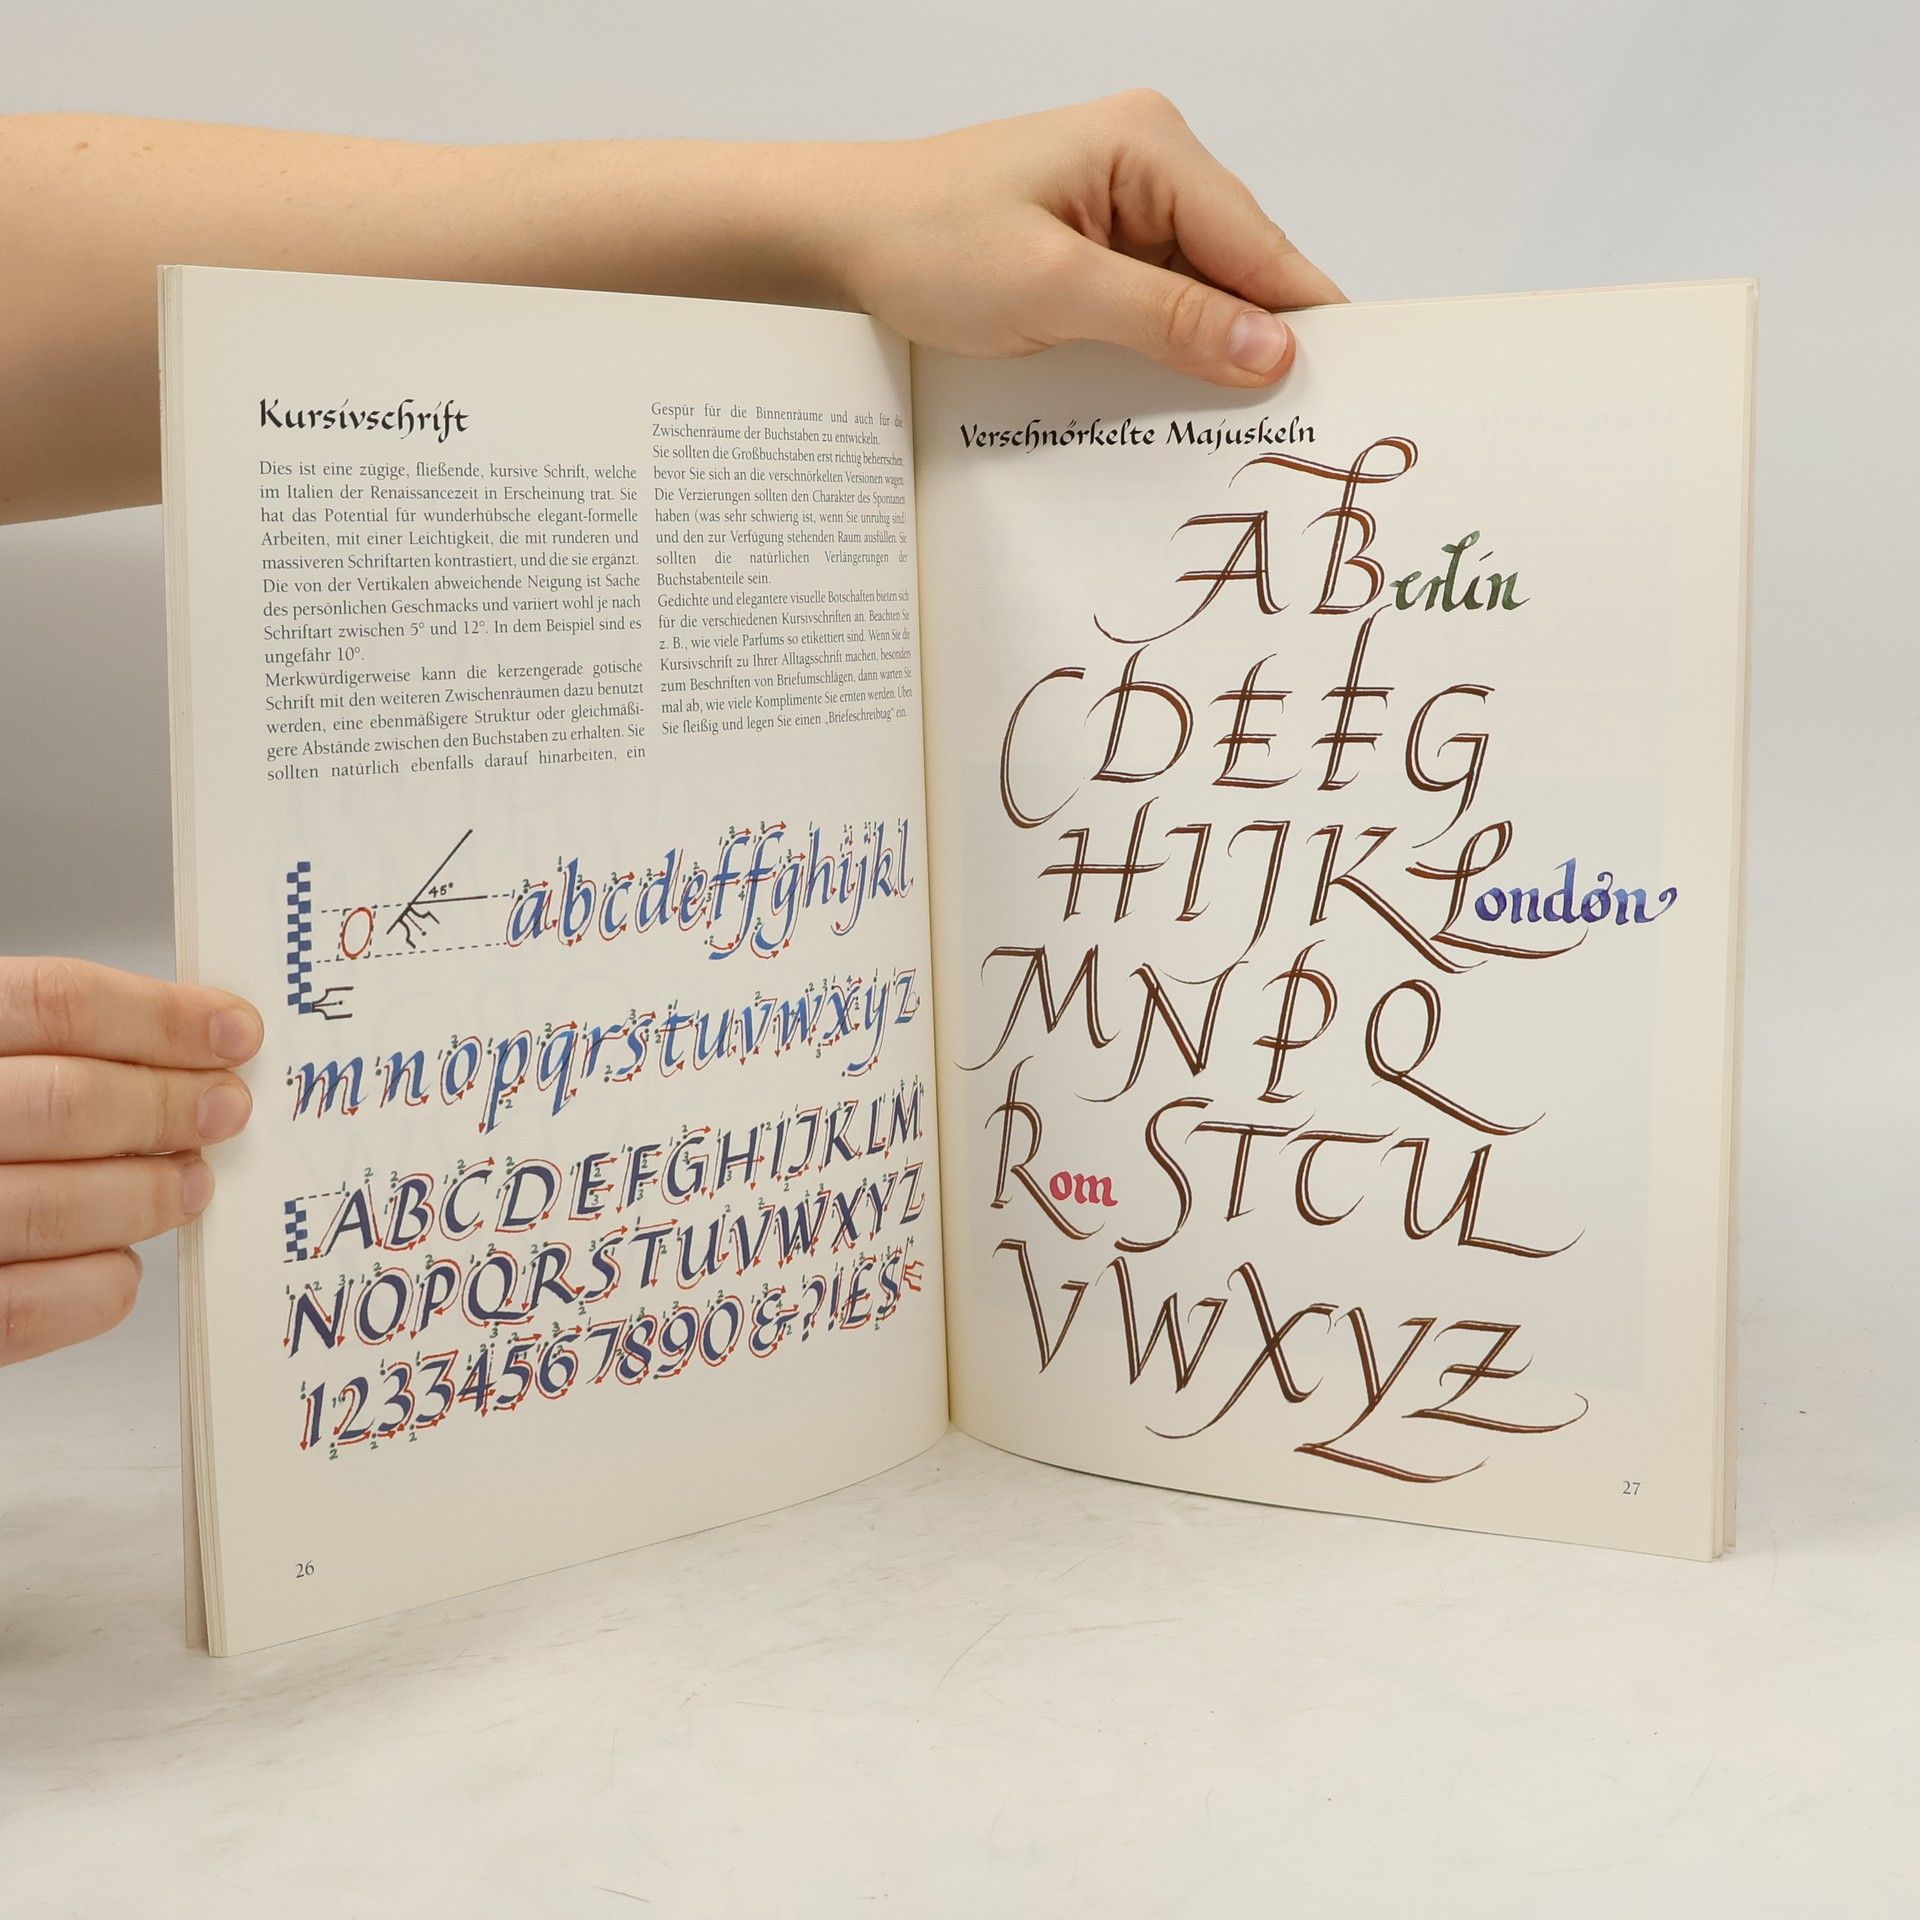 Kursivschrift
Dies ist eine zügige, fließende, kursive Schrift, welche
im Italien der Renaissancezeit in Erscheinung trat. Sie
hat das Potential für wunderhübsche elegant-formelle
Arbeiten, mit einer Leichtigkeit, die mit runderen und
massiveren Schriftarten kontrastiert, und die sie ergänzt.
Die von der Vertikalen abweichende Neigung ist Sache
des persönlichen Geschmacks und variiert wohl je nach
Schriftart zwischen 5° und 12°. In dem Beispiel sind es
ungefähr 10°.
Merkwürdigerweise kann die kerzengerade gotische
Schrift mit den weiteren Zwischenräumen dazu benutzt
werden, eine ebenmäßigere Struktur oder gleichmäßi-
gere Abstände zwischen den Buchstaben zu erhalten. Sie
sollten natürlich ebenfalls darauf hinarbeiten, ein
Gespür für die Binnenräume und auch für die
Zwischenräume der Buchstaben zu entwickeln.
Sie sollten die Großbuchstaben erst richtig beherrschen,
bevor Sie sich an die verschnörkelten Versionen wagen.
Die Verzierungen sollten den Charakter des Spontanen
haben (was sehr schwierig ist, wenn Sie unruhig sind)
und den zur Verfügung stehenden Raum ausfüllen. Sie
sollten die natürlichen Verlängerungen der
Buchstabenteile sein.
Gedichte und elegantere visuelle Botschaften bieten sich
für die verschiedenen Kursivschriften an. Beachten Sie
z. B., wie viele Parfums so etikettiert sind. Wenn Sie die
Kursivschrift zu Ihrer Alltagsschrift machen, besonders
zum Beschriften von Briefumschlägen, dann warten Sie
mal ab, wie viele Komplimente Sie ernten werden. Üben
Sie fleißig und legen Sie einen „Briefeschreibtag" ein.
45°
abcdeffghijkl
mnopqrstuvwxyz
ABCDEFGHIJKLM
NOPQRSTUVWXYZ
12334567890&?!ES
26
Verschnörkelte Majuskeln
A Berlin
CDEFG
HIJKLondon
MNPQ
Rom STTU
VWXYZ
27